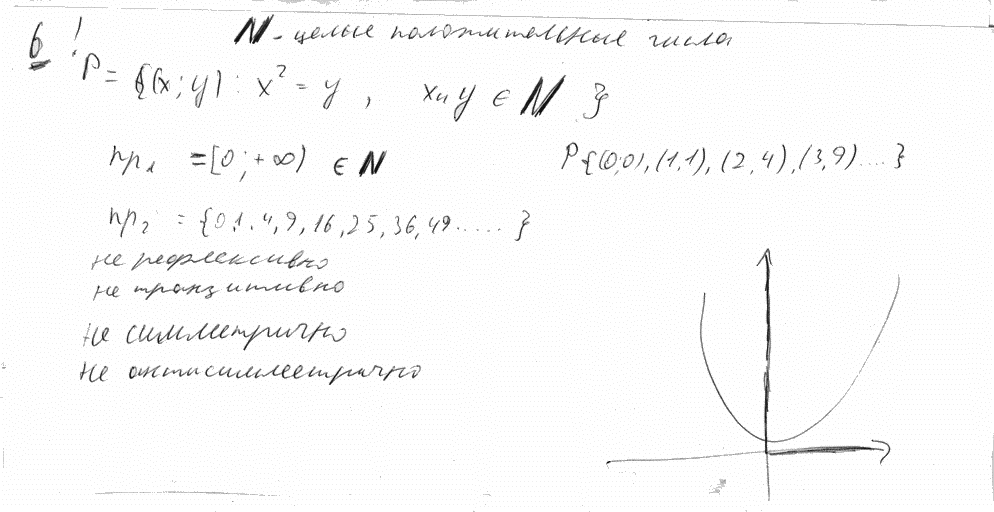 6 ! N - целые положительные числа
P = {(x; y) : x² = y , x и y ∈ N }
пр₁ = [0 ; +∞) ∈ N
P{(0;0), (1,1), (2,4), (3,9) .... }
пр₂ = {0,1,4,9,16,25,36,49 ..... }
не рефлексивно
не транзитивно
не симметрично
не антисимметрично